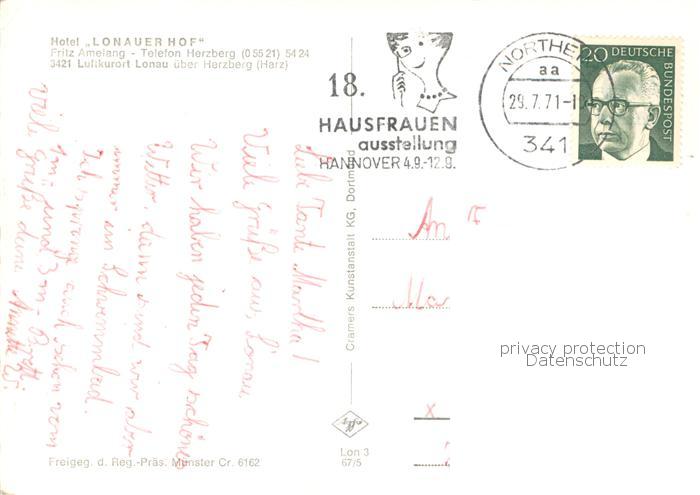 Hotel „LONAUER HOF"
Fritz Amelang - Telefon Herzberg (0 55 21) 54 24
3421 Luftkurort Lonau über Herzberg (Harz)
Liebe Tante Martha!
Viele Grüße aus Lonau.
Wir haben jeden Tag schönes
Wetter, dann sind wir aber
immer im Schwimmbad.
Ich springe auch schon vom
1m und 3m-Brett.
Viele Grüße deine Annette W.
Freigeg. d. Reg.-Präs. Münster Cr. 6162
Cramers Kunstanstalt KG, Dortmund
Lon 3
67/5
18.
HAUSFRAUEN
ausstellung
HANNOVER 4.9.-12.9.
NORTHEI
aa
29.7.71-1
341
20 DEUTSCHE
BUNDESPOST
An F
Ma
x
privacy protection
Datenschutz